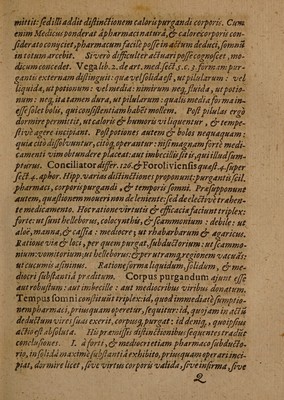 mittit: sed illi addit distinctionem caloris purgandi corporis. Cum
enim Medicus ponderat à pharmaci natura, & calore corporis con-
siderato conijciet, pharmacum facilè posse in actum deduci, somnũ
in totum arcebit. Si verò difficulter actuari posse cognoscet, mo-
dicum concedet. Vega lib. 2. de art. med. sect. 5. c. 5. formam pur-
gantis externam distinguit: qua vel solida est, ut pilularum: vel
liquida, ut potionum: vel media: nimirum neq, fluida, ut potio-
num: neq, ita tamen dura, ut pilularum: qualis media forma in-
esse solet bolis, qui consistentiam habẽt mollem. Post pilulas ergò
dormire permittit, ut caloris & humoris vi liquentur, & tempe-
stivè agere incipiant. Post potiones autem & bolos nequaquam:
quia citò dissolvuntur, citóq, operantur: nisi magnam fortè medi-
camenti vim obtundere placeat: aut imbecillis sit is, qui illud sum-
pturus. Conciliator differ. 126. & Foroliviensis quæst. 4. super
sect. 4. aphor. Hipp. varias distinctiones proponunt: purgantis scil.
pharmaci, corporis purgandi, & temporis somni. Præsupponunt
autem, quæstionem moveri non de leniente: sed de electivè trahen-
te medicamento. Hoc ratione virtutis & efficaciæ faciunt triplex:
forte: ut sunt helleborus, colocynthis, & scammonium: debile: ut
aloë, manna, & cassia: mediocre; ut rhabarbarum & agaricus.
Ratione viæ & loci, per quem purgat, subductorium: ut scammo-
nium: vomitorium: ut helleborus: & per utramq, regionem vacuãs:
ut cucumis asininus. Ratione formæ liquidum, solidum, & me-
diocri substantiâ præditum. Corpus purgandum ajunt esse
aut robustum: aut imbecille: aut mediocribus viribus donatum.
Tempus somni constituũt triplex: id, quod immediatè sumptio-
nem pharmaci, priusquam operetur, sequitur: id, quo jam in actũ
deductum vires suas exerit, corpusq, purgat: id deniq, quo ipsius
actio est absoluta. His præmissis distinctionibus sequentes tradũt
conclusiones. I. à forti, & mediocri etiam pharmaco subducto-
rio, in solidâ maximè substantiâ exhibito, priusquam operari inci-
piat, dormire licet, sive virtus corporis valida, sive infirma, sive
Q